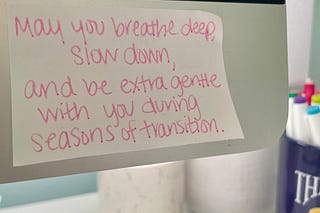 May you breathe deep,
slow down,
and be extra gentle
with you during
seasons of transition.
TH